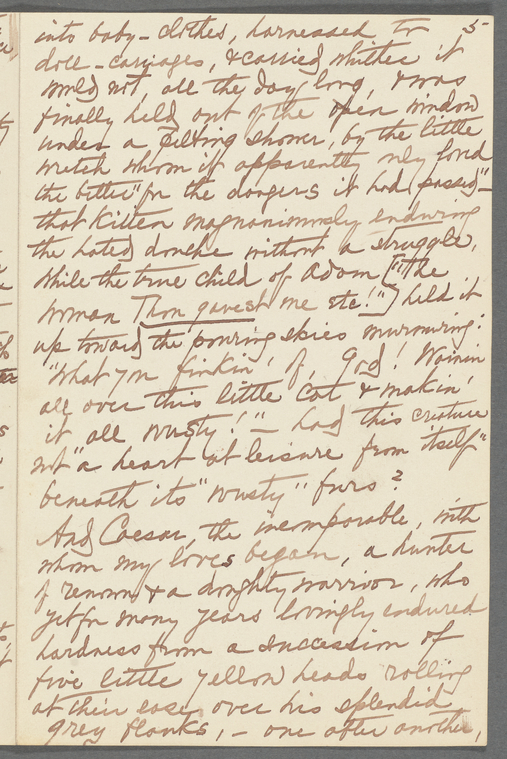 5
into baby-clothes, harnessed to
doll-carriages, & carried whither it
would not, all the day long, & was
finally held out of the open window
under a pelting shower, by the little
wretch whom it apparently only loved
the better "for the dangers it had passed" –
that Kitten magnanimously enduring
the hated douche without a struggle,
while the true child of Adam ["The
woman Thou gavest me etc!"] held it
up toward the pouring skies murmuring:
"What you finkin' of, God! Wainin'
all over this little cat & makin'
it all wusty!" – had this creature
not "a heart at leisure from itself"
beneath its "wusty" furs?
And Caesar, the incomparable, with
whom my loves began, a hunter
of renown & a doughty warrior, who
yet for many years lovingly endured
hardness from a succession of
five little yellow heads rolling
at their ease over his splendid
grey flanks, – one after another,